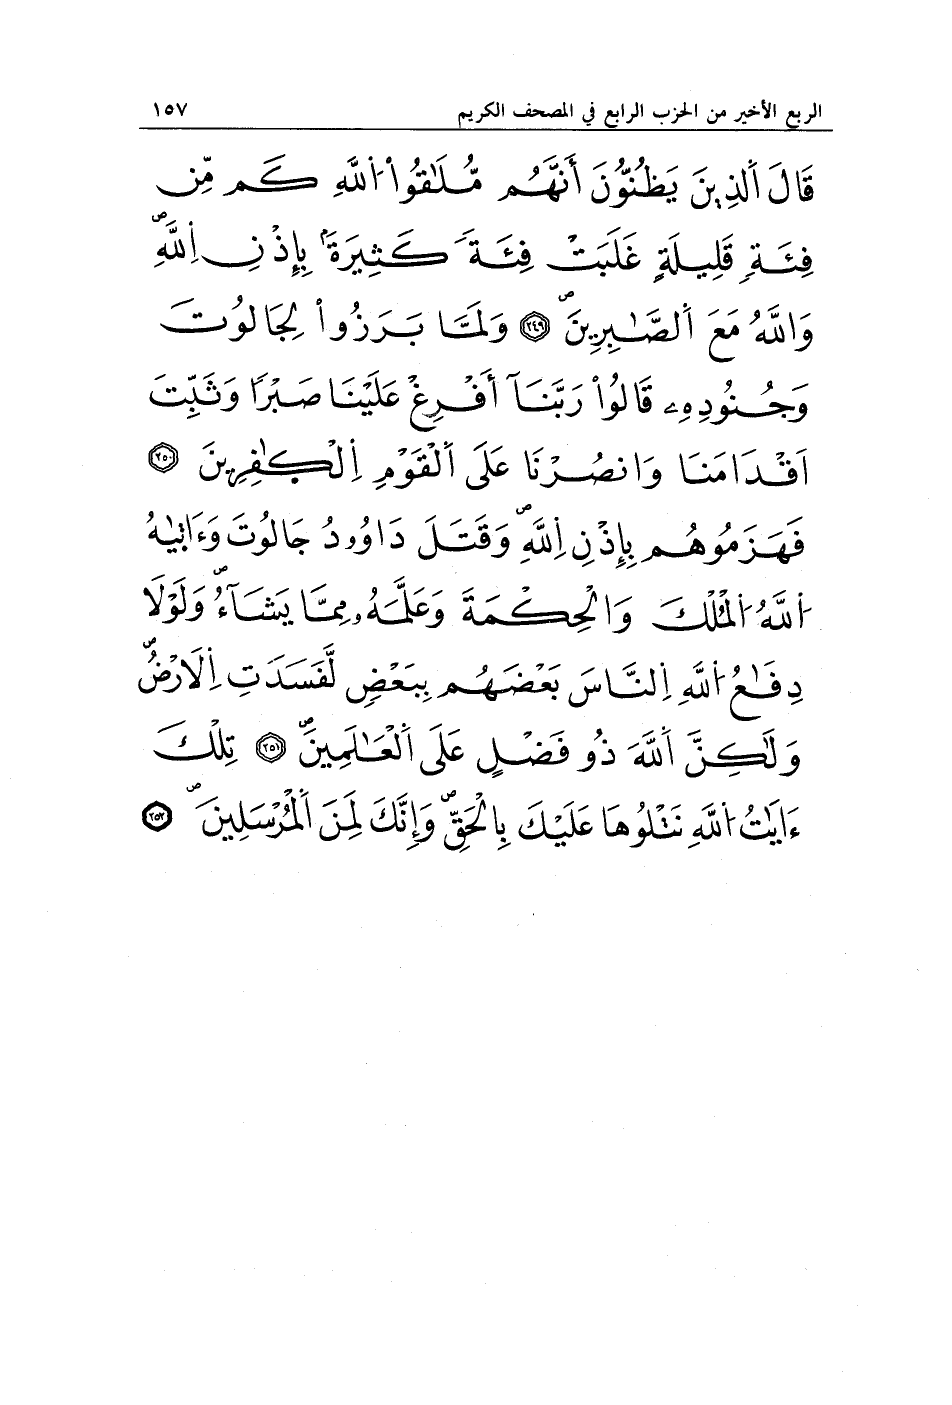 الربع الأخير من الحزب الرابع في المصحف الكريم ١٥٧
قَالَ اَ۬لذِينَ يَظُنُّونَ أَنَّهُم مُّلَٰقُواْ اُ۬للَّهِ كَم مِّن
فِئَةٍ قَلِيلَةٍ غَلَبَتْ فِئَةً كَثِيرَةَۢ بِإِذْنِ اِ۬للَّهِۖ
وَاللَّهُ مَعَ اَ۬لصَّٰبِرِينَۖ ٢٤٩ وَلَمَّا بَرَزُواْ لِجَالُوتَ
وَجُنُودِهِۦ قَالُواْ رَبَّنَآ أَفْرِغْ عَلَيْنَا صَبْرًا وَثَبِّتَ
اَقْدَامَنَا وَانصُرْنَا عَلَى اَ۬لْقَوْمِ اِ۬لْكٰفِرِينَ ٢٥٠
فَهَزَمُوهُم بِإِذْنِ اِ۬للَّهِۖ وَقَتَلَ دَاوُۥدُ جَالُوتَ وَءَاتٜيٰهُ
اُ۬للَّهُ اُ۬لْمُلْكَ وَالْحِكْمَةَ وَعَلَّمَهُۥ مِمَّا يَشَآءُۖ وَلَوْلَا
دِفَٰعُ اُ۬للَّهِ اِ۬لنَّاسَ بَعْضَهُم بِبَعْضٍ لَّفَسَدَتِ اِ۬لَارْضُۖ
وَلَٰكِنَّ اَ۬للَّهَ ذُو فَضْلٍ عَلَى اَ۬لْعَٰلَمِينَۖ ٢٥١ تِلْكَ
ءَايَٰتُ اُ۬للَّهِ نَتْلُوهَا عَلَيْكَ بِالْحَقِّۖ وَإِنَّكَ لَمِنَ اَ۬لْمُرْسَلِينَۖ ٢٥٢